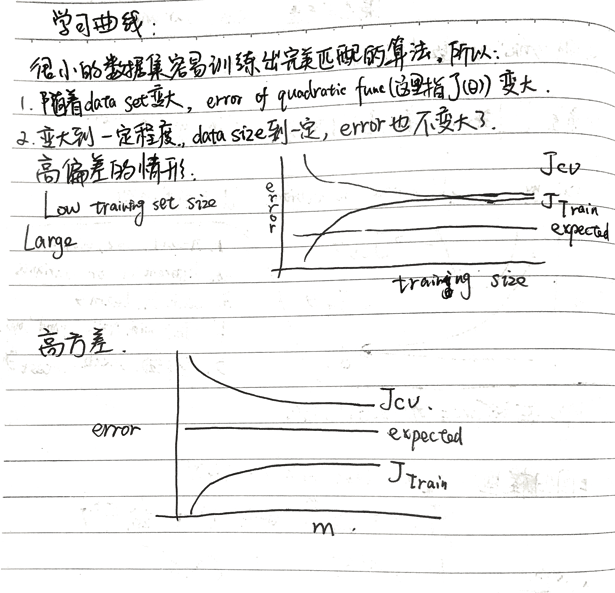 学习曲线:
很小的数据集容易训练出完美匹配的算法。所以:
1. 随着data set变大, error of quadratic func(这里指J(θ)) 变大.
2. 变大到一定程度, data size到一定, error也不变大了.
高偏差的情形.
Low training set size
Large
error
Jcv
JTrain
expected
training size
高方差.
error
Jcv.
expected
JTrain
m.